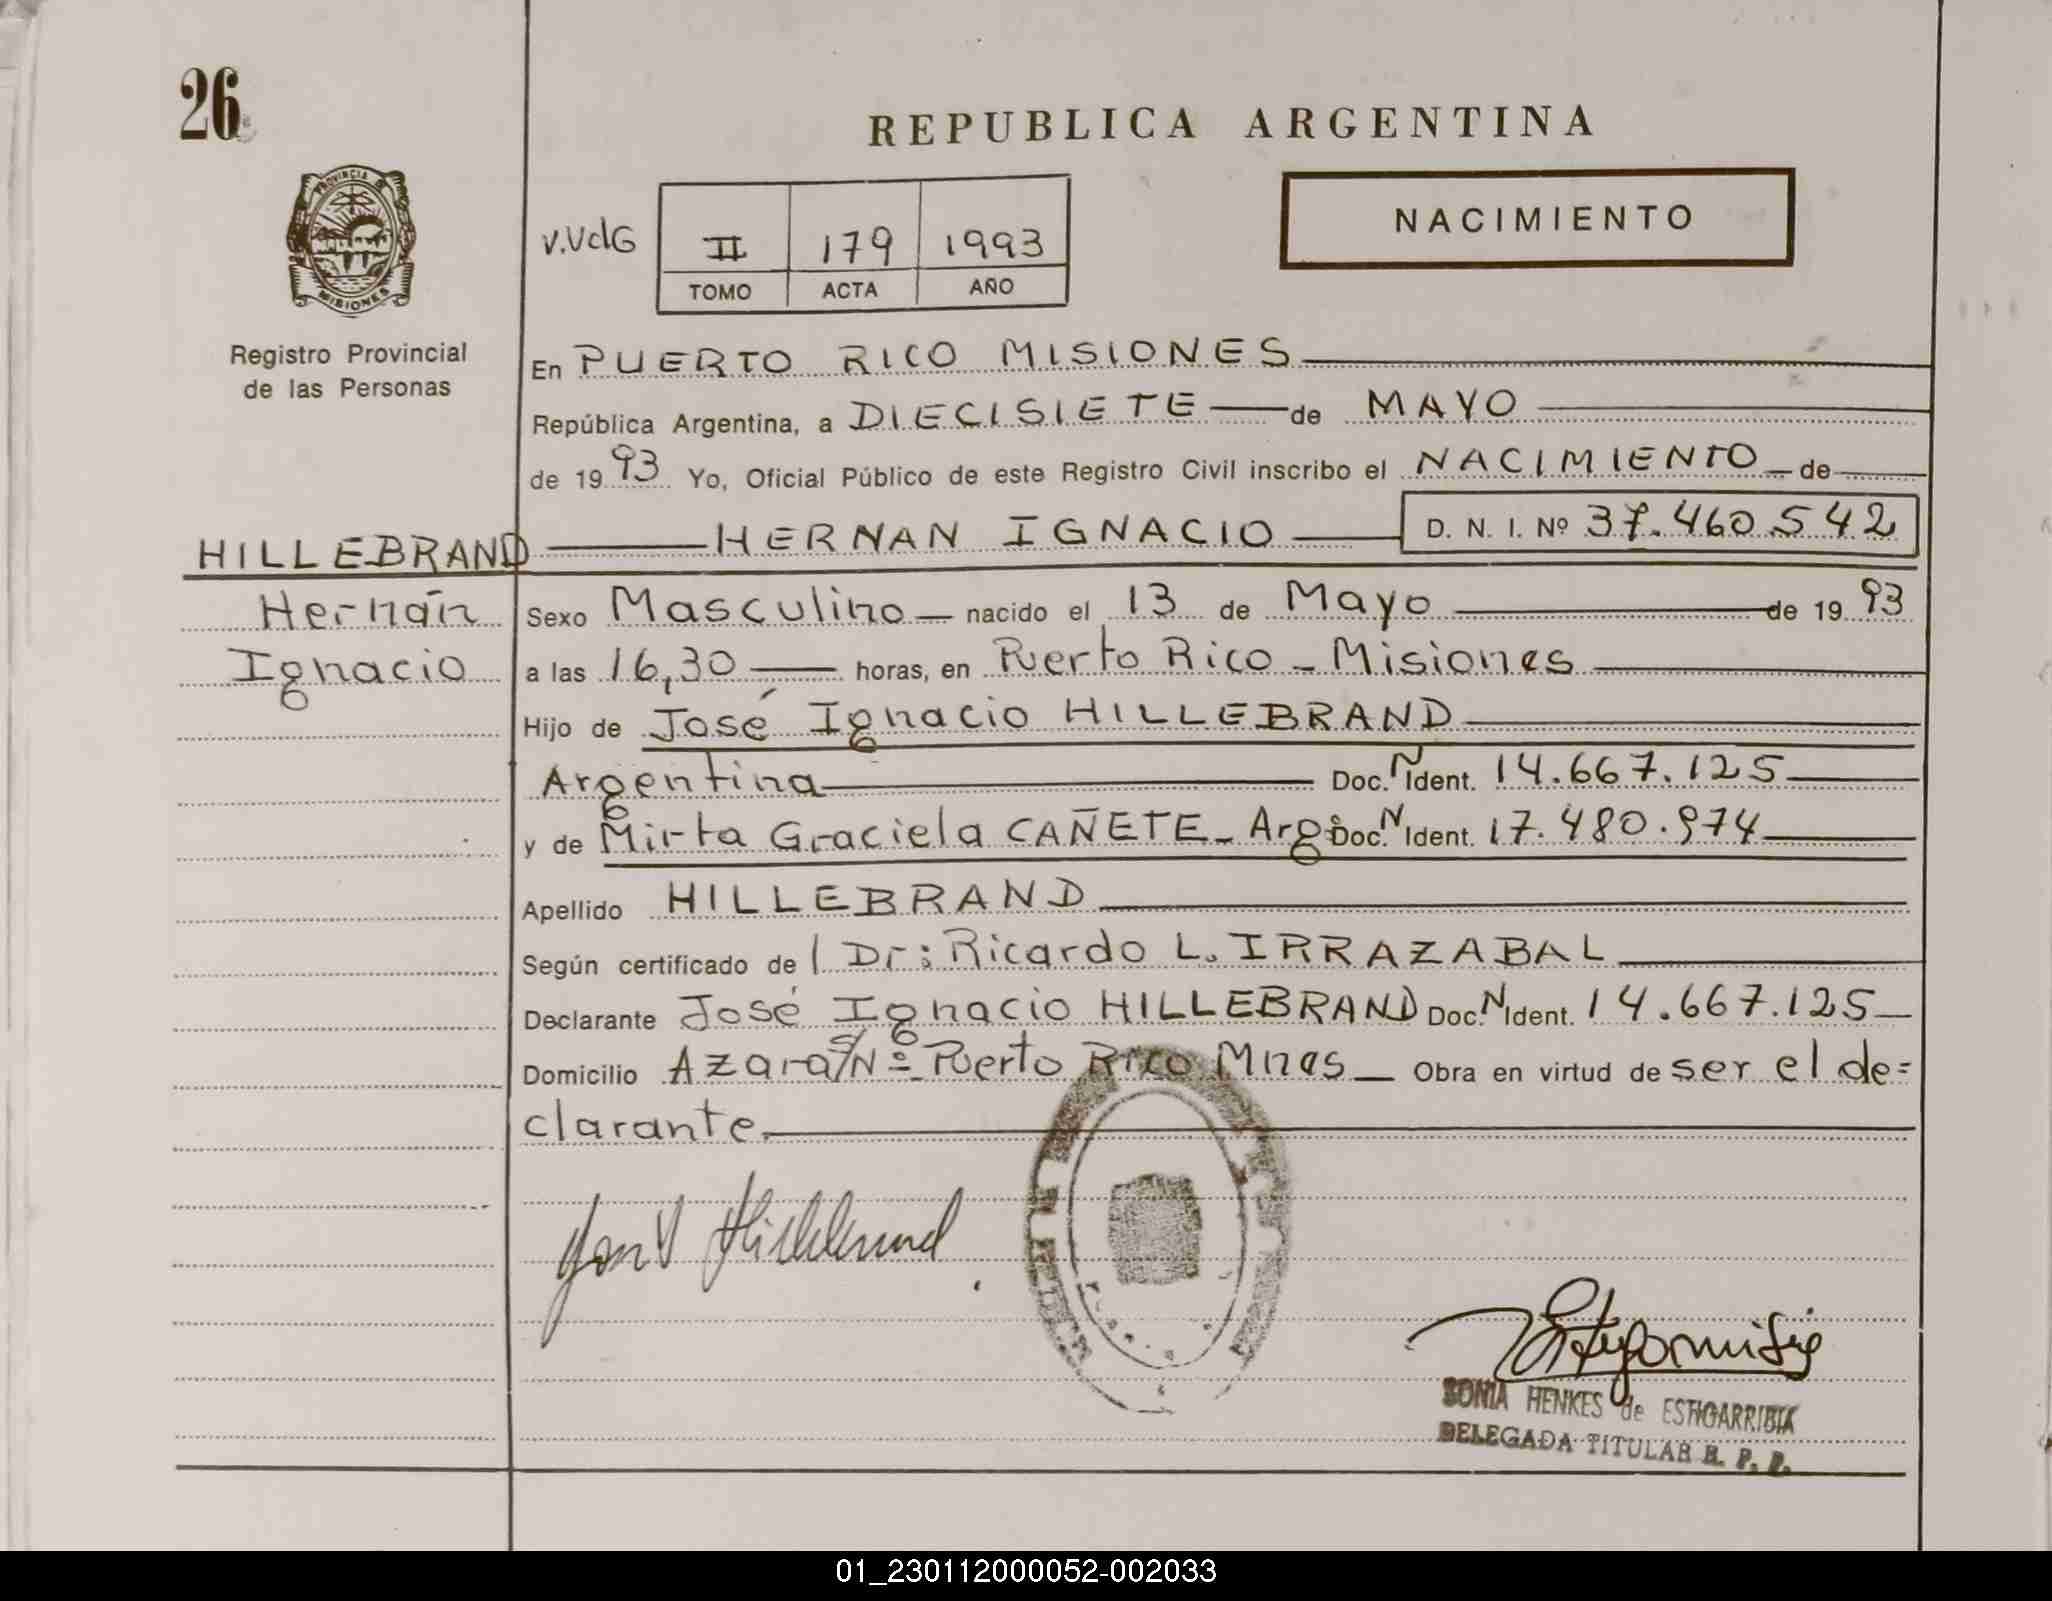 26
REPUBLICA ARGENTINA
PROVINCIA DE
MISIONES
NACIMIENTO
V.VdG II 179 1993
TOMO ACTA AÑO
Registro Provincial
de las Personas
En PUERTO RICO MISIONES
República Argentina, a DIECISIETE de MAYO
de 1993 Yo, Oficial Público de este Registro Civil inscribo el NACIMIENTO de
HILLEBRAND HERNAN IGNACIO D. N. I. Nº 37.460.542
Hernán
Ignacio
Sexo Masculino nacido el 13 de Mayo de 1993
a las 16,30 horas, en Puerto Rico - Misiones
Hijo de José Ignacio HILLEBRAND
Argentina Doc. N Ident. 14.667.125
y de Mirta Graciela CAÑETE - Arg. Doc. N Ident. 17.480.974
Apellido HILLEBRAND
Según certificado de l Dr: Ricardo L. IRRAZABAL
Declarante José Ignacio HILLEBRAND Doc. N Ident. 14.667.125
Domicilio Azara S/Nº Puerto Rico Mnes Obra en virtud de ser el de=
clarante.
SONIA HENKES de ESTIGARRIBIA
DELEGADA TITULAR R. P. P.
01_230112000052-002033